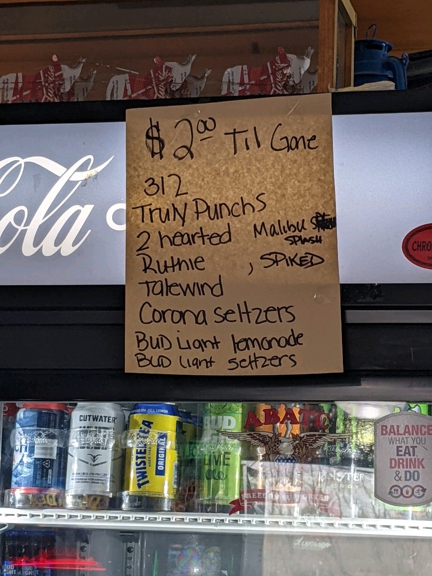 $2.00 Til Gone
312
Truly Punchs
2 hearted Malibu
Splash
Ruthie , SPIKED
Talewind
Corona seltzers
BuD Light lemonade
BuD Light seltzers
ola
CHRO
CUTWATER
TWISTED TEA
ORIGINAL
BUD
LIME
ABAT
BALANCE
WHAT YOU
EAT
DRINK
& DO